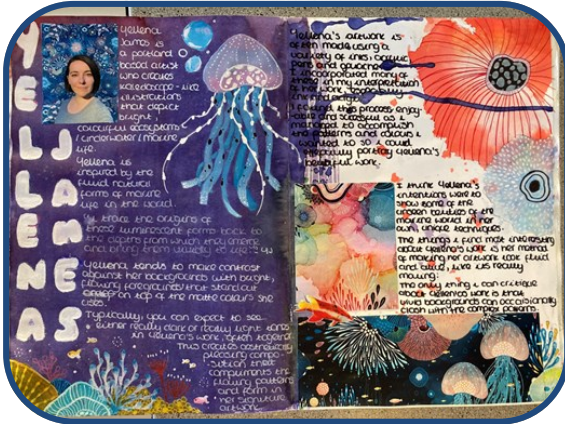 YELLENA JAMES
Yellena
James is
a portland
based artist
who creates
kaleidoscope-like
illustrations
that depict
bright,
colourful ecosystems
underwater/marine
life.
Yellena is
inspired by the
fluid natural
forms of marine
life in the world.
these luminescent forms back to
the depths from which they emerge
and bring them visually to life
Yellena tends to make contrast
against her backgrounds with bright,
flowing foregrounds that stand out
on top of the matte colours she
uses.
Typically you can expect to see
either really dark or really light tones
in Yellena's work, often together
This creates aesthetically
pleasing compo-
sition that
compliments the
flowing patterns
and form in
her signature
artwork.
Yellena's artwork is
often made using a
variety of inks, acrylic
pens and gouache
I incorporated many of
these in my interpretation
of her work, especially
inks
I found this process enjoy-
able and successful as I
managed to accomplish
the patterns and colours I
wanted to so I could
portray Yellena's
beautiful work.
I think Yellena's
intentions were to
show some of the
beauties of the
marine world in her
own unique techniques.
The things I find most interesting
about Yellena's work is her method
of making her artwork look fluid
and alive, like it's really
moving.
The only thing I can critique
about Yellena's work is that
backgrounds can occasionally
clash with the complex patterns.